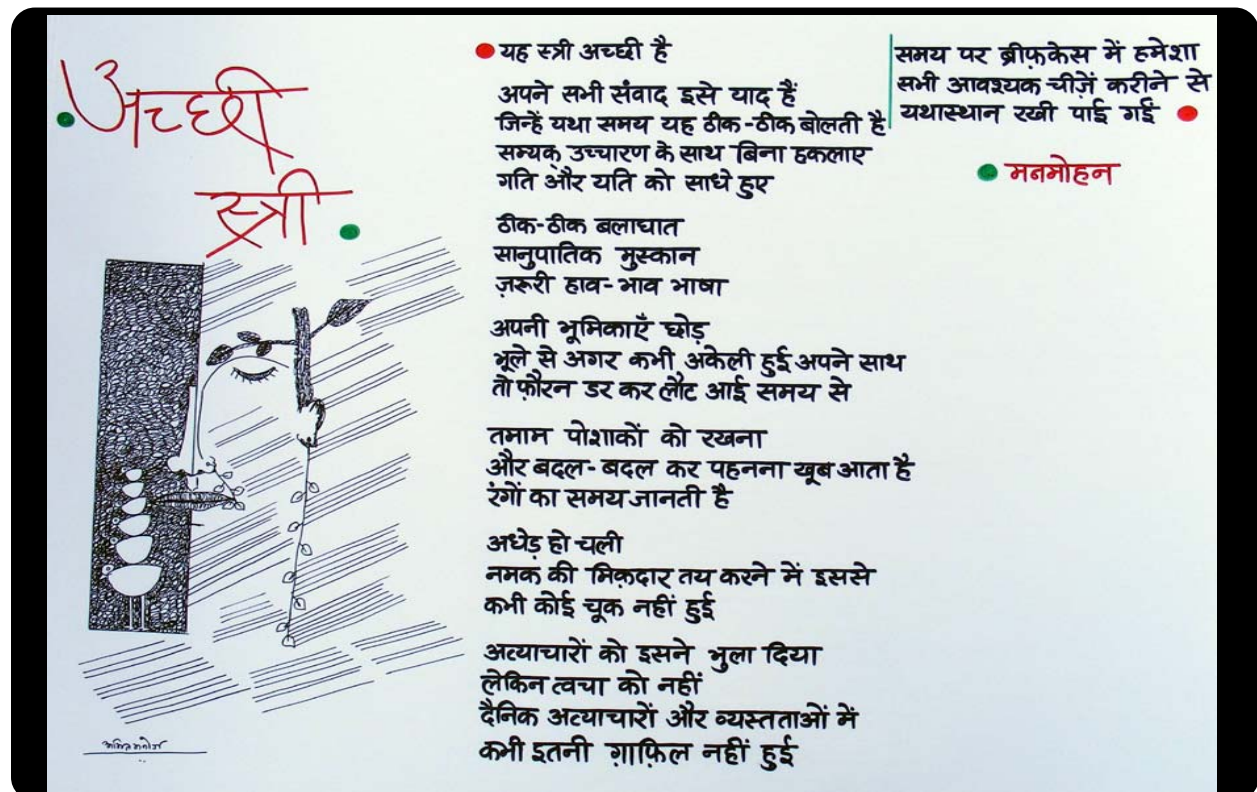 अच्छी
स्त्री
यह स्त्री अच्छी है
अपने सभी संवाद इसे याद हैं
जिन्हें यथा समय यह ठीक-ठीक बोलती है
सम्यक् उच्चारण के साथ बिना हकलाए
गति और यति को साधे हुए
ठीक-ठीक बलाघात
सानुपातिक मुस्कान
ज़रूरी हाव-भाव भाषा
अपनी भूमिकाएँ छोड़
भूले से अगर कभी अकेली हुई अपने साथ
तो फ़ौरन डर कर लौट आई समय से
तमाम पोशाकों को रखना
और बदल-बदल कर पहनना खूब आता है
रंगों का समय जानती है
अधेड़ हो चली
नमक की मिक़दार तय करने में इससे
कभी कोई चूक नहीं हुई
अत्याचारों को इसने भुला दिया
लेकिन त्वचा को नहीं
दैनिक अत्याचारों और व्यस्तताओं में
कभी इतनी ग़ाफ़िल नहीं हुई
समय पर ब्रीफ़केस में हमेशा
सभी आवश्यक चीज़ें करीने से
यथास्थान रखी पाई गईं
मनमोहन